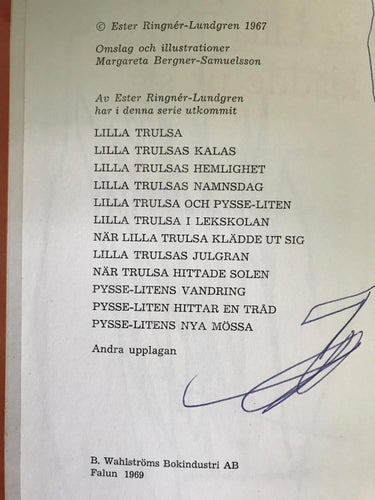 © Ester Ringnér-Lundgren 1967
Omslag och illustrationer
Margareta Bergner-Samuelsson
Av Ester Ringnér-Lundgren
har i denna serie utkommit
LILLA TRULSA
LILLA TRULSAS KALAS
LILLA TRULSAS HEMLIGHET
LILLA TRULSAS NAMNSDAG
LILLA TRULSA OCH PYSSE-LITEN
LILLA TRULSA I LEKSKOLAN
NÄR LILLA TRULSA KLÄDDE UT SIG
LILLA TRULSAS JULGRAN
NÄR TRULSA HITTADE SOLEN
PYSSE-LITENS VANDRING
PYSSE-LITEN HITTAR EN TRÅD
PYSSE-LITENS NYA MÖSSA
Andra upplagan
B. Wahlströms Bokindustri AB
Falun 1969